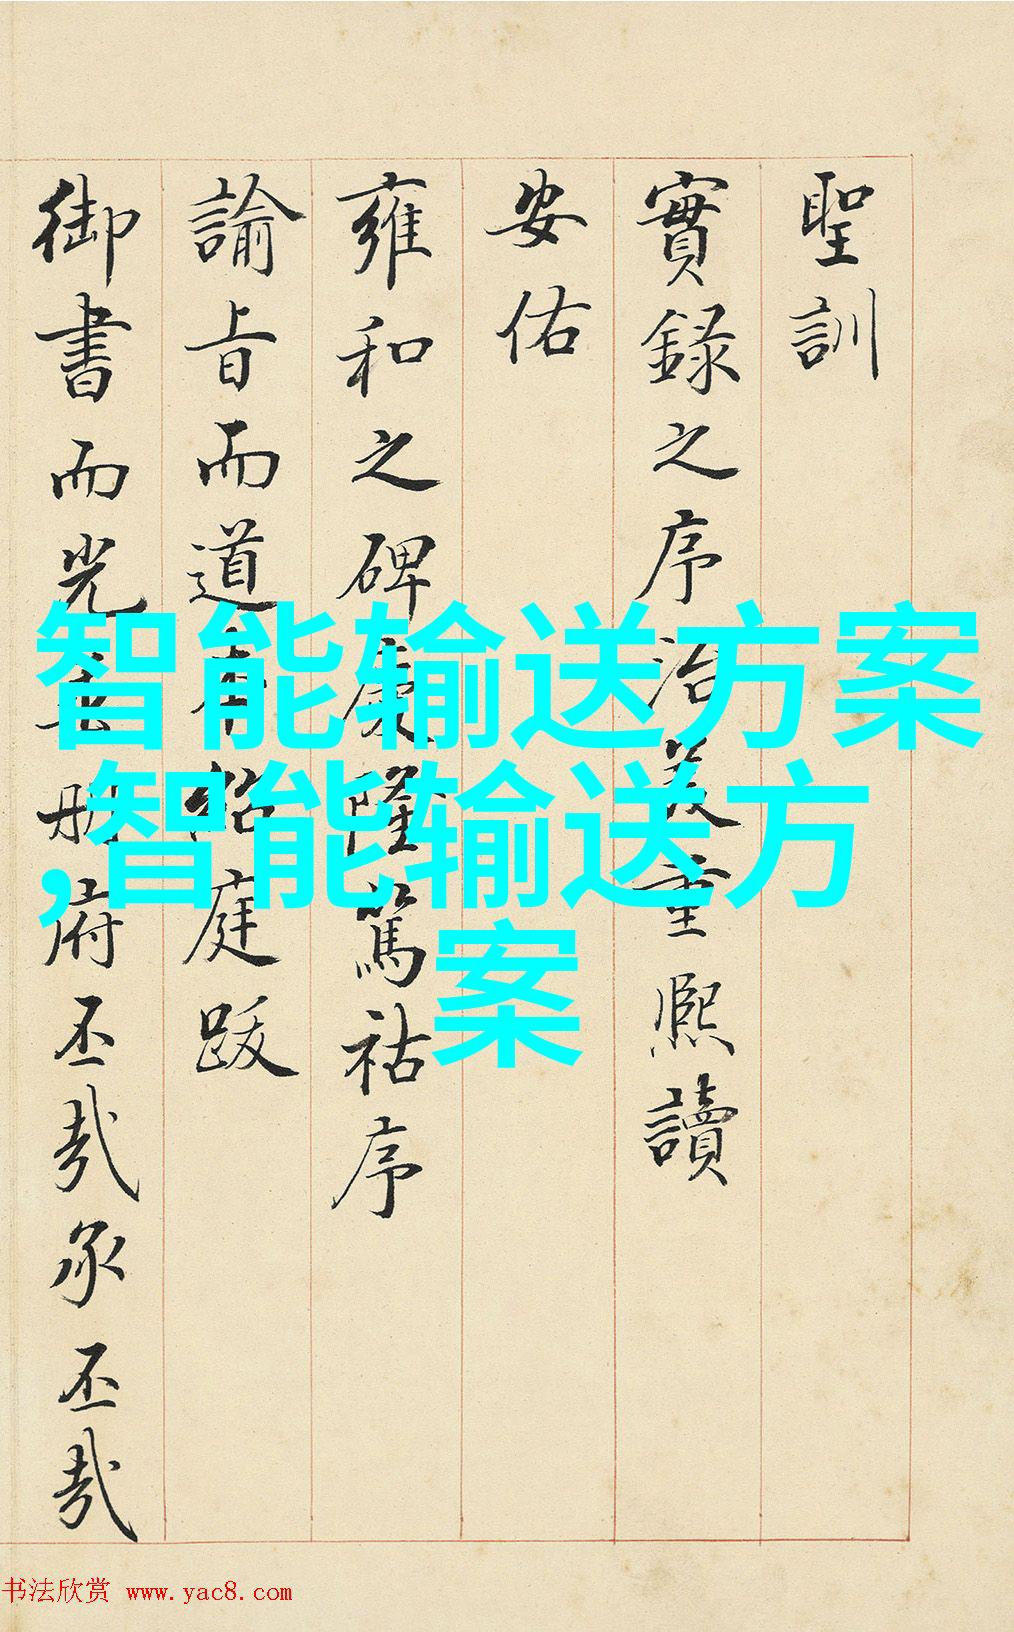 聖訓
實錄之序治羨重熙讀
安佑
雍和之碑康隆篤祜序
諭旨而道存紹庭跋
御書而光垂册府丕哉承丕哉
智能输送方案
,智能输送方
案
书法欣赏 www.yac8.com